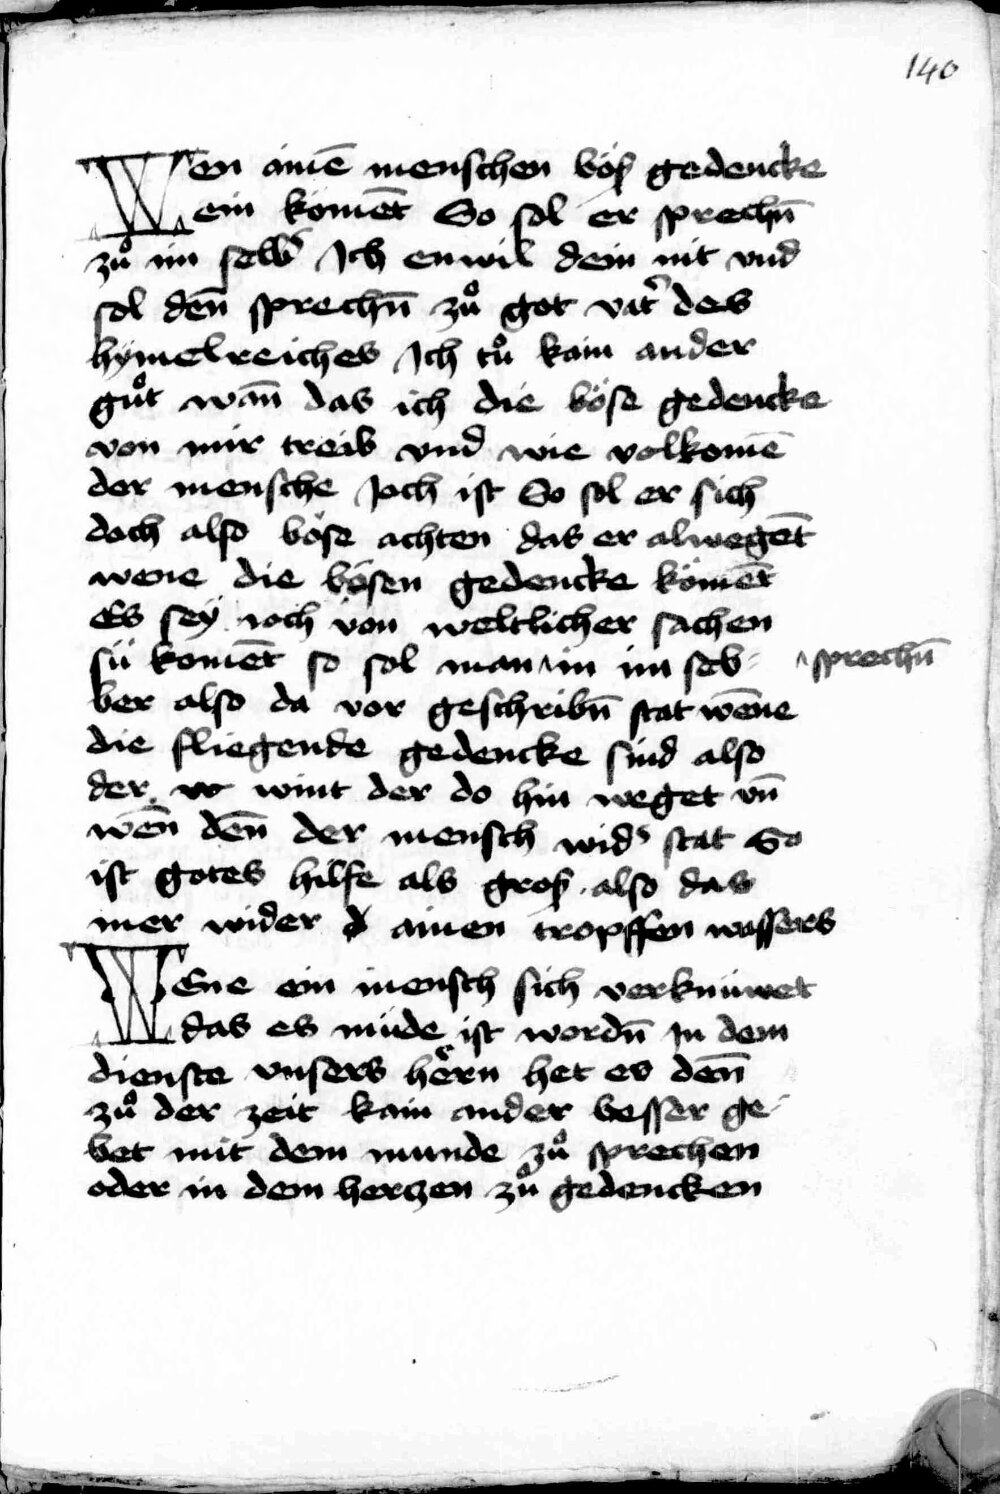 140
Wen aimē menschen böß gedencke
ein komēt So sol er sprechn̄
zuͦ im selbs Ich enwil dein nit vnd
sol den̄ sprechn̄ zuͦ got vat͛ des
hymelreiches Ich tuͦ kain ander
guͦt wan̄ das ich die böse gedencke
von mir treib vnd wie volkomē
der mensche Joch ist So sol er sich
doch also böse achten das er alwegēt
wene die bösen gedencke komēt
Es seÿ ioch von weltlicher sachen
sü komēt so sol man im im seb- sprechn̄
ber also da vor geschribn̄ stat wēne
die fliegende gedencke sind also
der w wint der do hin weget vn̄
wēn den̄ der mensch wid͛ stat So
ist gotes hilfe als groß also das
mer wider d ainen tropffen wassers
WEne ein mensch sich verknüwet
das es müde ist wordn̄ In dem
dienste vnsers heͤrn het es den̄
zuͦ der zeit kain ander besser ge-
bet mit dem munde zuͦ sprechen
oder in dem hertzen zuͦ gedencken